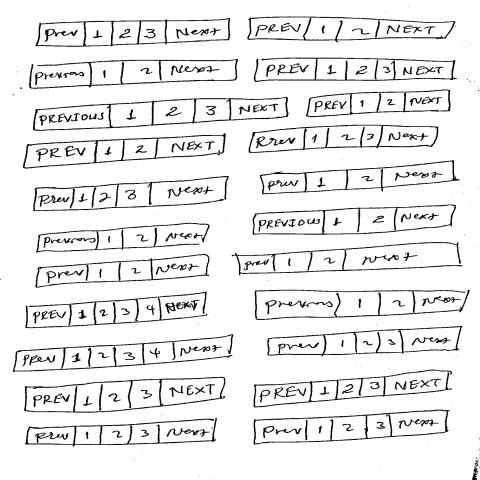 Prev 1 2 3 Next
PREV 1 2 NEXT
Previous 1 2 Next
PREV 1 2 3 NEXT
PREVIOUS 1 2 3 NEXT
PREV 1 2 NEXT
PREV 1 2 NEXT
Prev 1 2 3 Next
Prev 1 2 3 Next
Prev 1 2 Next
PREVIOUS 1 2 Next
Previous 1 2 Next
Prev 1 2 Next
Prev 1 2 Next
PREV 1 2 3 4 NEXT
Previous 1 2 Next
Prev 1 2 3 4 Next
Prev 1 2 3 Next
PREV 1 2 3 NEXT
PREV 1 2 3 NEXT
Prev 1 2 3 Next
Prev 1 2 3 Next